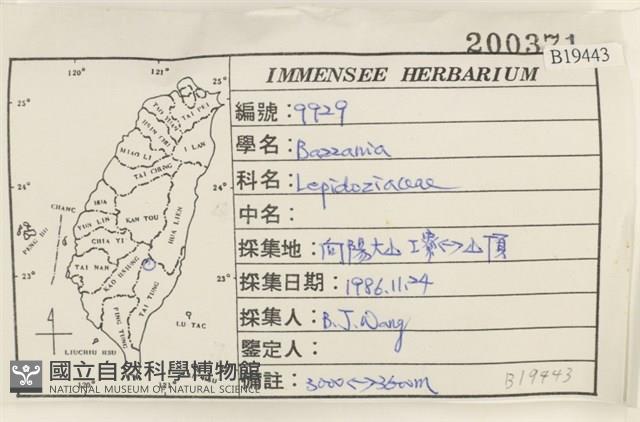 200371
B19443
IMMENSEE HERBARIUM
編號：9929
學名：Bazzania
科名：Lepidoziaceae
中名：
採集地：向陽大山 工寮<->山頂
採集日期：1986.11.24
採集人：B.J.Wang
鑒定人：
備註：3000<->3600m
B19443
120° 121°
25° 25°
TAI PEI
I LAN
MIAO LI
TAI CHUNG
24° 24°
CHANG HUA
HUA LIEN
NAN TOU
YUN LIN
PENG HU
CHIA YI
TAI NAN
KAO HSIUNG
23° 23°
TAI TUNG
PING TUNG
LU TAO
LIUCHIU HSU
120° 121°
國立自然科學博物館
NATIONAL MUSEUM OF NATURAL SCIENCE